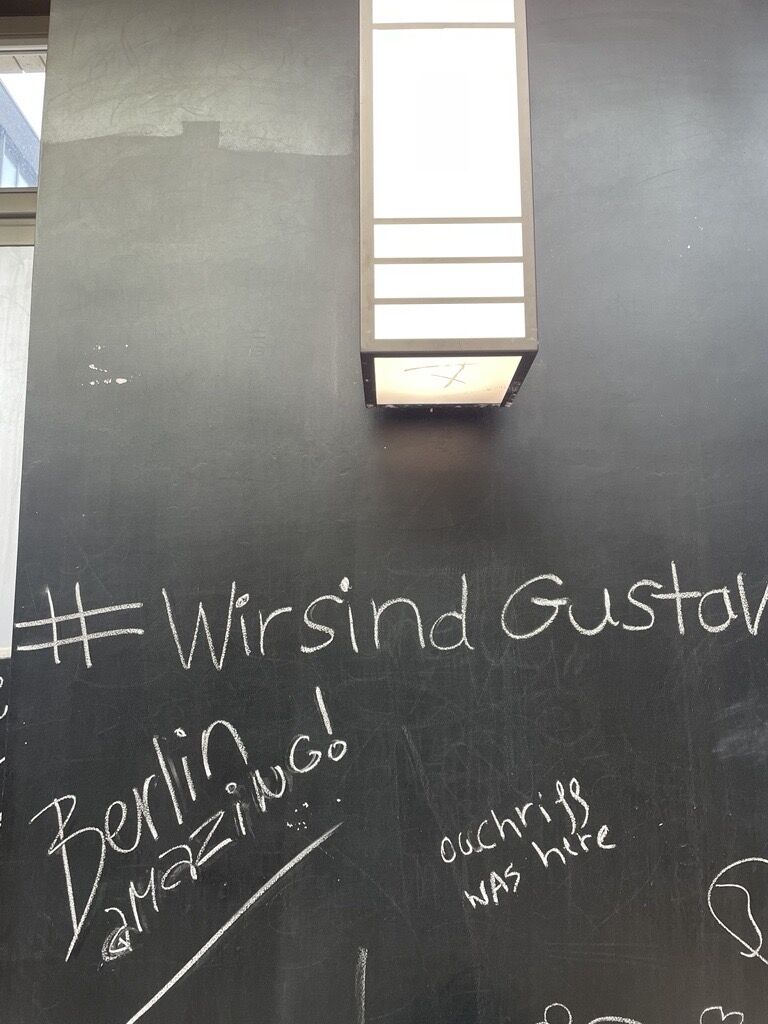 #Wirsind Gustav
Berlin
amazing!
ouchriff
was here